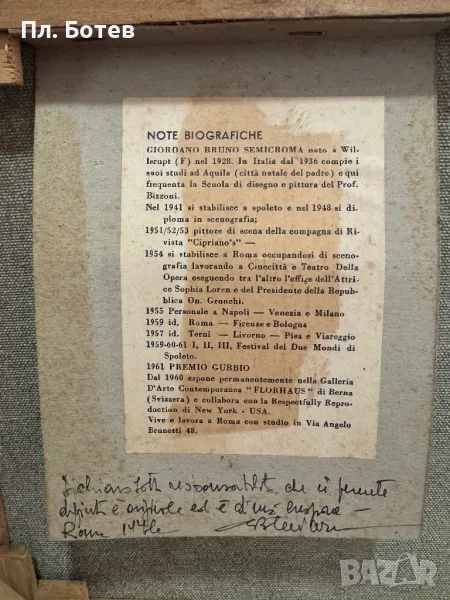 Пл. Ботев
NOTE BIOGRAFICHE
GIORDANO BRUNO SEMICROMA nato a Wil-
lerupt (F) nel 1928. In Italia dal 1936 compie i
suoi studi ad Aquila (città natale del padre) e qui
frequenta la Scuola di disegno e pittura del Prof.
Bizzoni.
Nel 1941 si stabilisce a spoleto e nel 1948 si di-
ploma in scenografia;
1951/52/53 pittore di scena della compagna di Ri-
vista "Cipriano's" —
1954 si stabilisce a Roma occupandosi di sceno-
grafia lavorando a Cinecittà e Teatro Della
Opera eseguendo tra l'altro l'effige dell'Attri-
ce Sophia Loren e del Presidente della Repub-
blica On. Gronchi.
1955 Personale a Napoli — Venezia e Milano
1959 id. Roma — Firenze e Bologna
1957 id. Terni — Livorno — Pisa e Viareggio
1959-60-61 I, II, III, Festival dei Due Mondi di
Spoleto.
1961 PREMIO GUBBIO
Dal 1960 espone permanentemente nella Galleria
D'Arte Contemporanea "FLORHAUS" di Berna
(Svizzera) e collabora con la Respectfully Repro-
duction di New York - USA.
Vive e lavora a Roma con studio in Via Angelo
Brunetti 48.
che il presente
dipinto è ed è di mia
Roma
BAZAR.bg